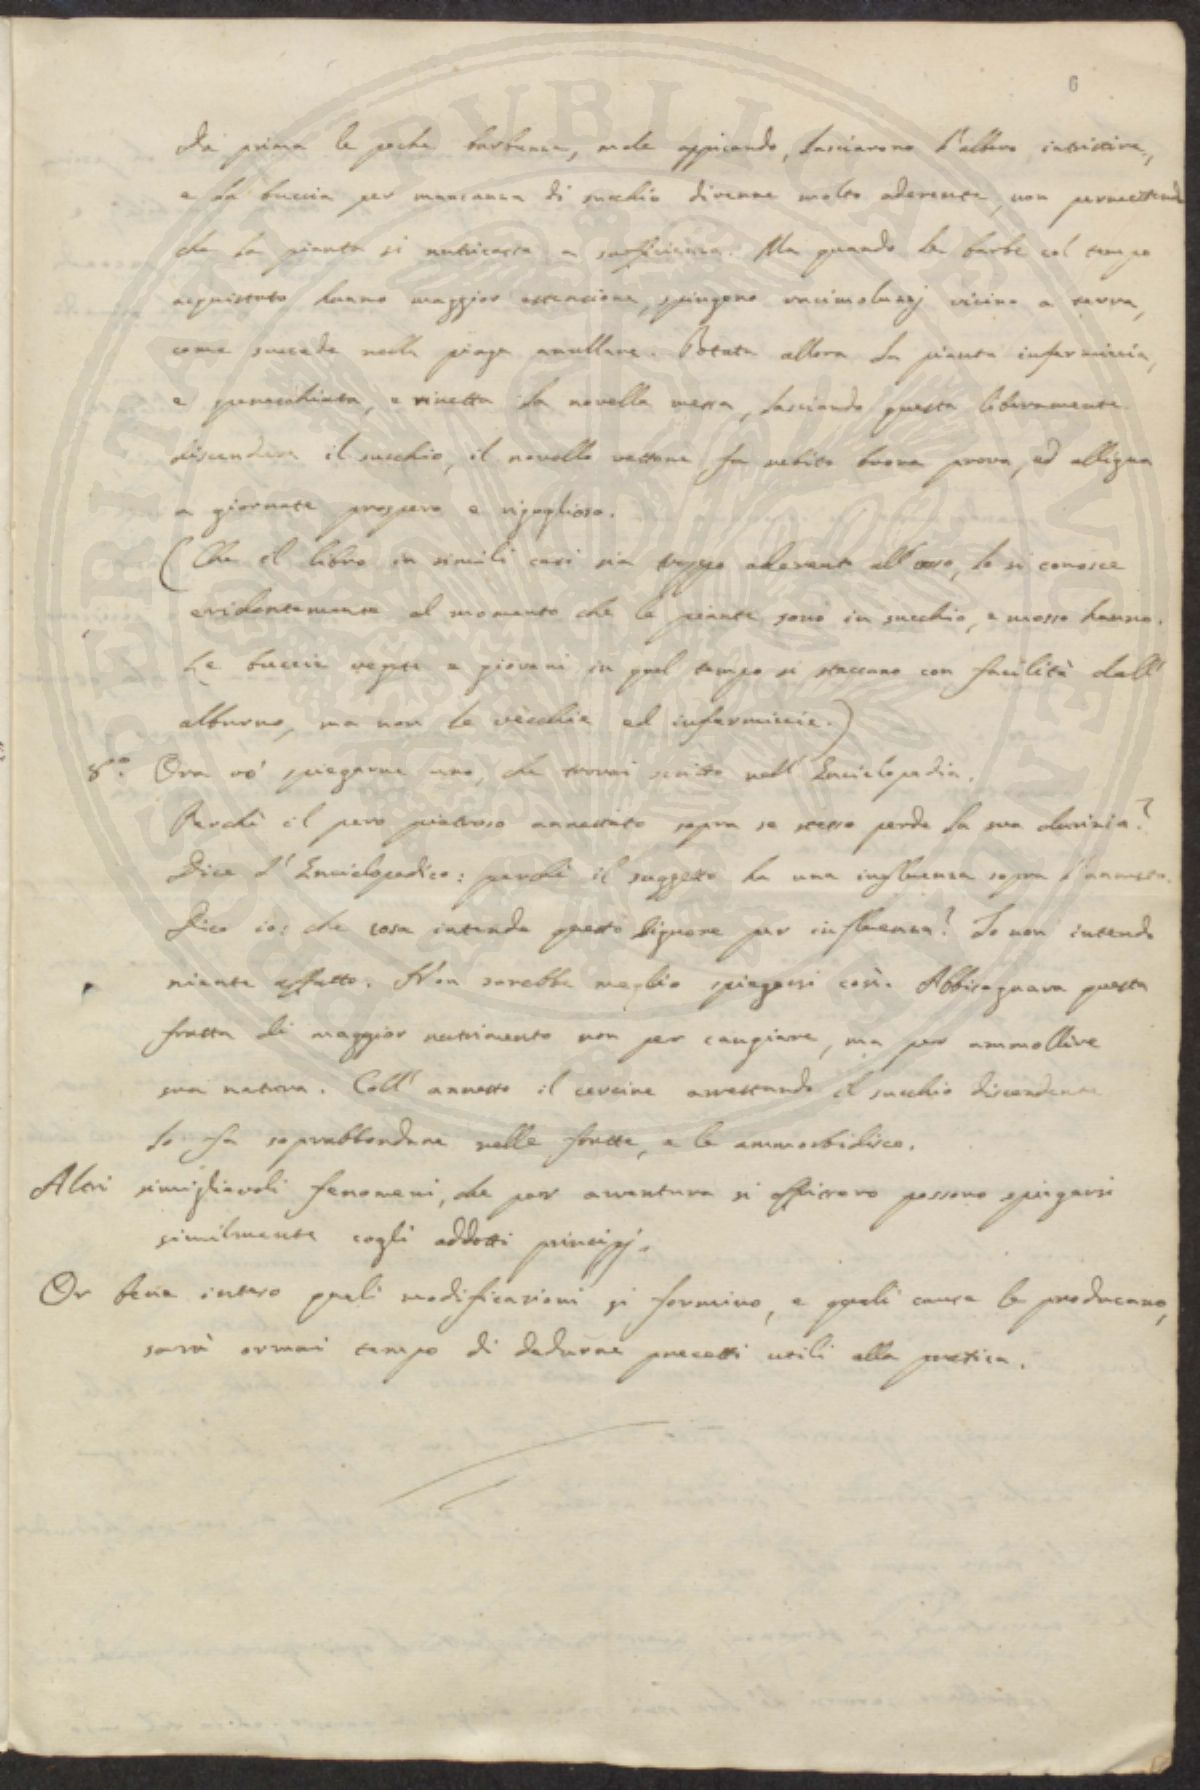 6
Da prima le poche barbenne, male appicando, lasciarono l'albero intristire,
e la buccia per mancanza di succhio divenne molto aderente, non permettendo
che la pianta si nutricasse a sufficienza. Ma quando le barbe col tempo
acquistato hanno maggior estenzione, spingono vicino a terra,
come succede nella piaga anullare. Potata allora la pianta infermiccia,
e , e rinetta la novella messa, lasciando questa liberamente
discendere il succhio, il novello vettone fa subito buona prova, ed alligna
a giornate prospero e rigoglioso.
(Che il libro in simili casi sia troppo aderente all'osso, lo si conosce
evidentemente al momento che le piante sono in succhio, e mosso hanno.
Le buccie vegete e giovani in quel tempo si staccano con facilità dall'
alburno, ma non le vecchie ed infermiccie.)
8°° Ora vo' spiegarne uno, che trovai scritto nell'Enciclopedia.
Perchè il pero pietroso annestato sopra se stesso perde la sua durizia?
Dice l'Enciclopedico: perchè il suggetto ha una influenza sopra l'annesto.
Dico io: che cosa intende questo Signore per influenza? Io non intendo
niente affatto. Non sarebbe meglio spiegarsi così. Abbisognava questa
frutta di maggior nutrimento non per cangiare, ma per ammollire
sua natura. Coll'annesto il cercine arrestando il succhio discendente
lo fa soprabbondare nelle frutte, e le ammorbidisce.
Altri simiglievoli fenomeni, che per avventura si offrissero possono spiegarsi
similmente cogli addotti principj.
Or bene inteso quali modificazioni si formino, e quali cause le producano,
sarà ormai tempo di dedurne precetti utili alla pratica.